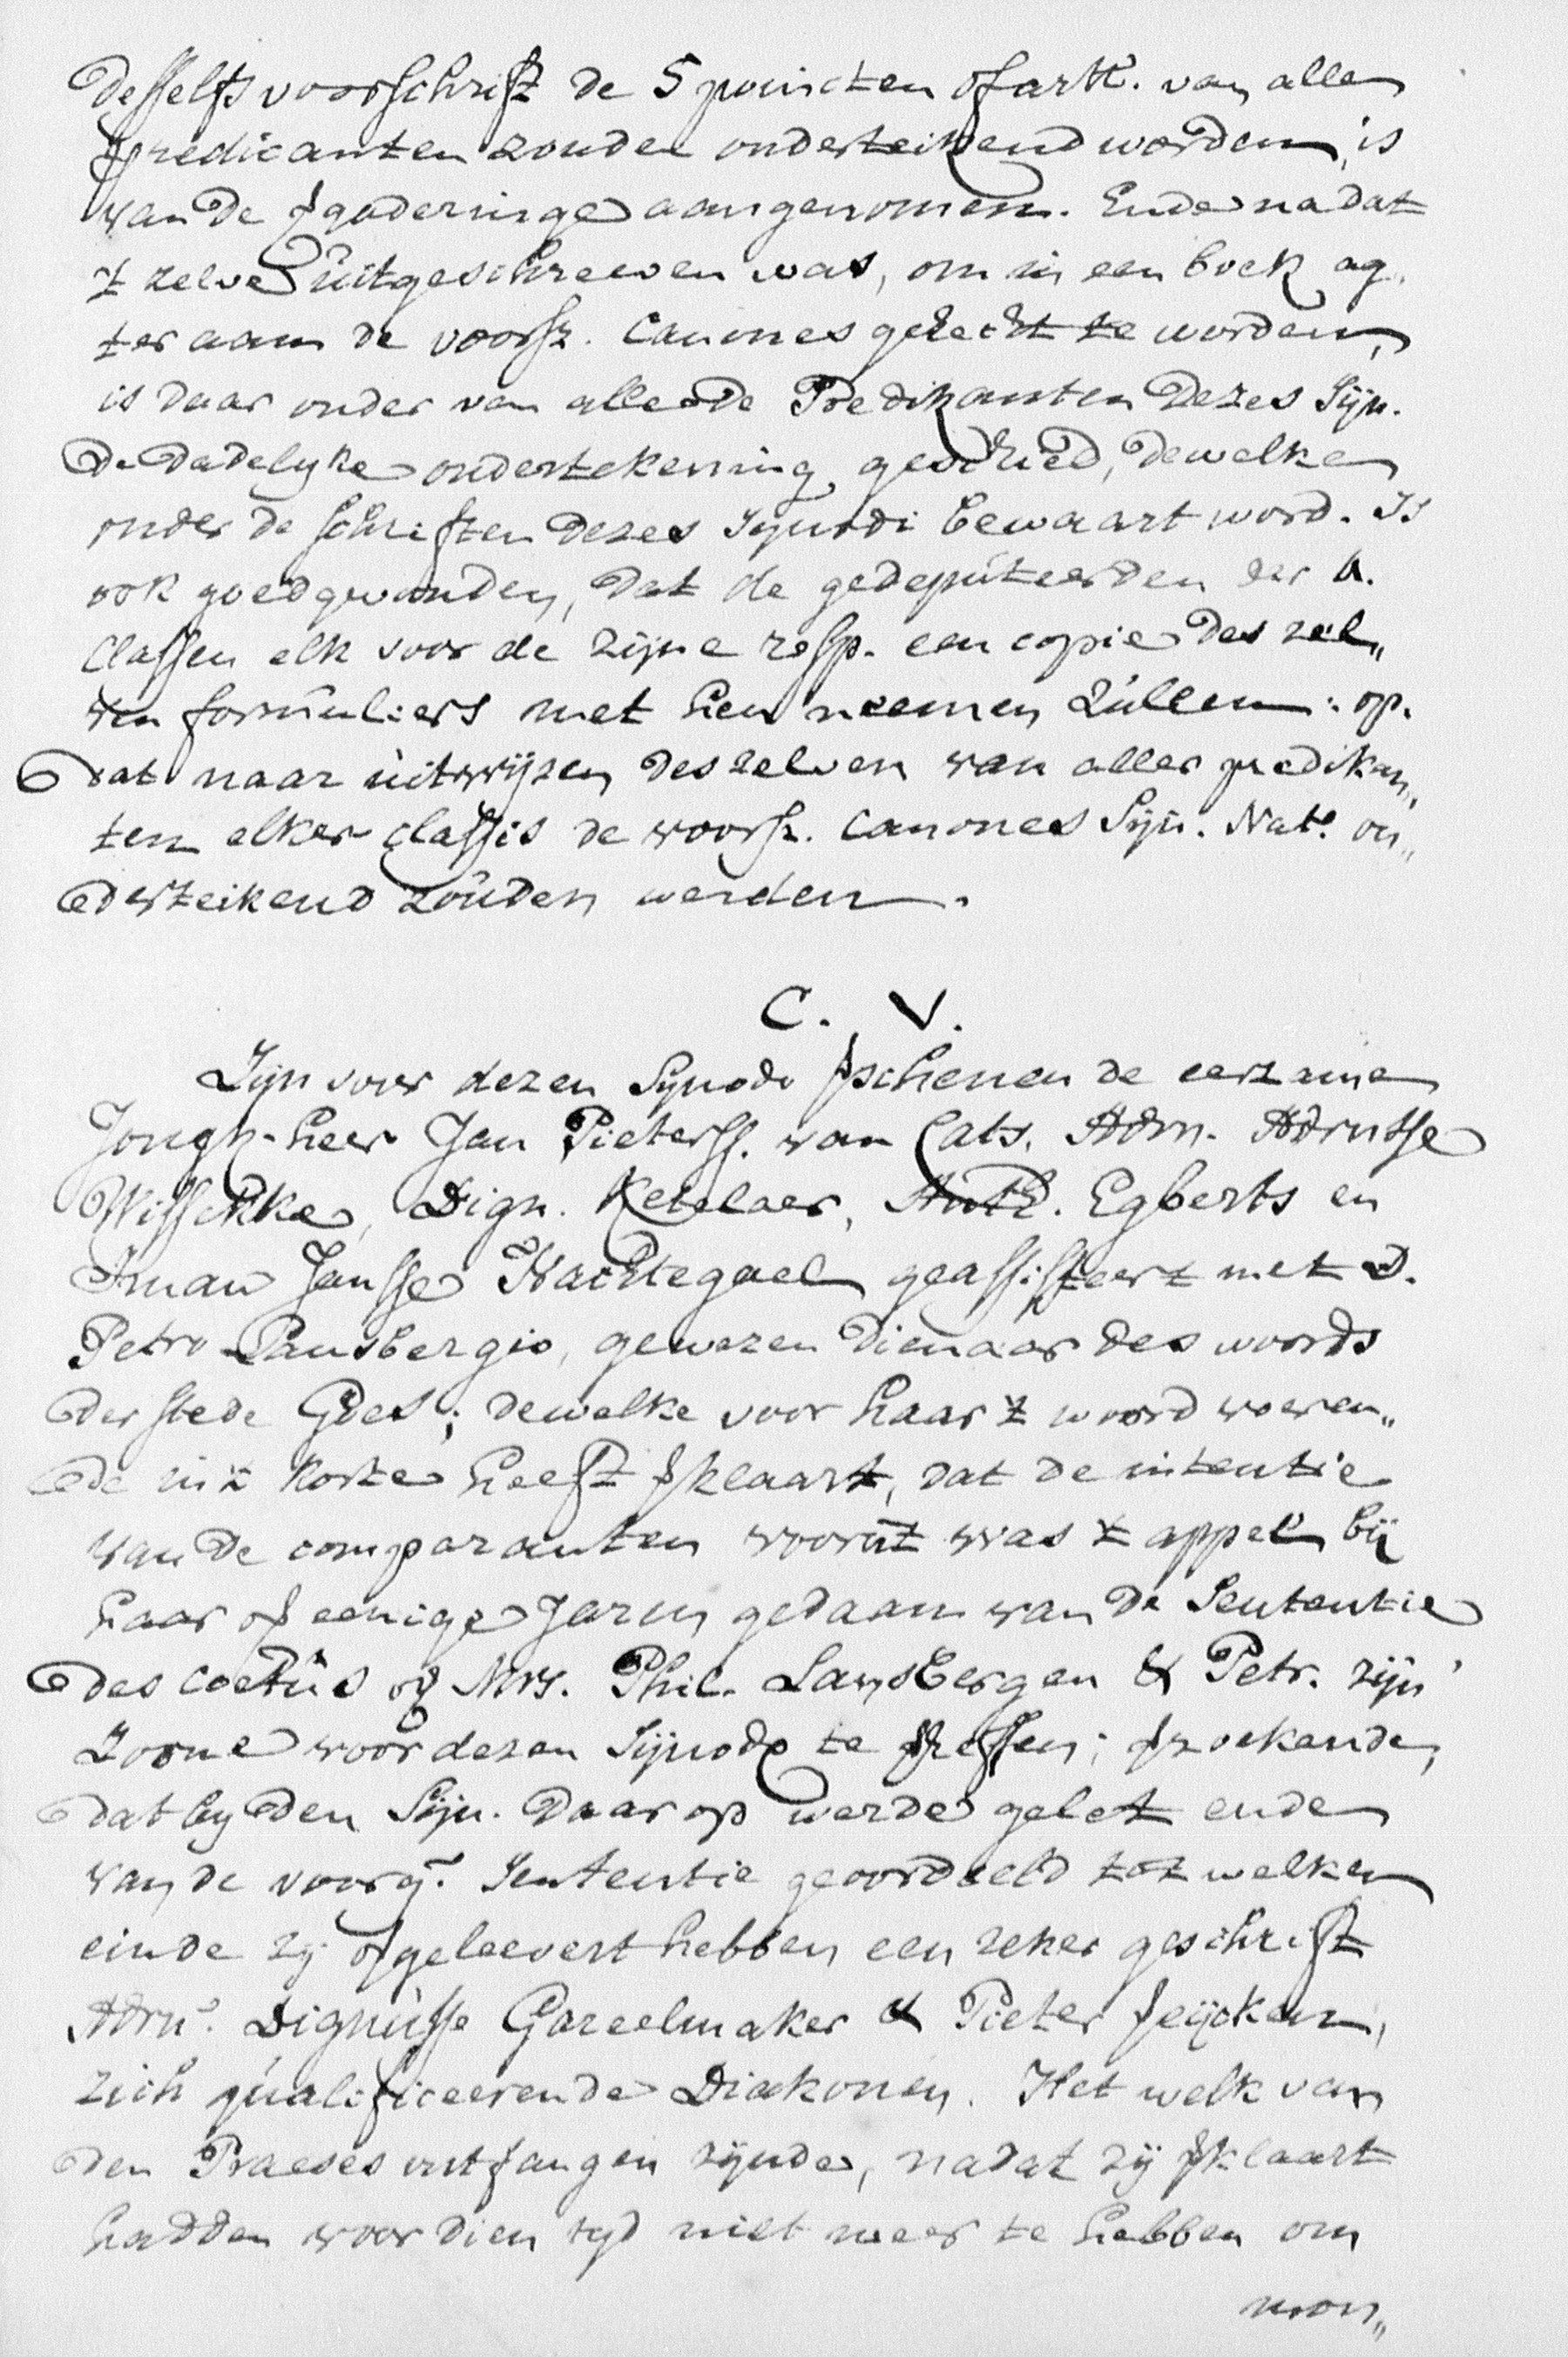 Desselfs voorschrift de 5 poincten of artl. van alle
predicanten zouden onderteikend worden, is
van de vgaderinge aangenomen. Ende na dat
't zelve uitgeschreeven was, om in een boek ag„
ter aan de voorsz. Canones gehecht te worden,
is daar onder van alle de Predikanten dezes Sÿn.
de dadelyke ondertekening geschied, dewelke
onder de schriften dezes Synodi bewaart word. Is
ook goedgevonden, dat de gedeputeerden der 4.
Classen elk voor de zijne resp. een copie des zel„
ven formuliers met hen neemen zullen: op„
dat naar uitwijzen des zelven van alle predikan„
ten elker classis de voorsz. Canones Sijn. Natl. on„
derteikend zouden werden.
C. V.
Zijn voor dezen Synodo vschenen de eerzame
Jongh-heer Jan Pieterss. van Cats, Adrn. Adrntse
Wissekke, Dign. Ketelaer, Anth. Egberts en
Iman Jansse Nachtegael geassisteert met D.
Petro Lansbergio, gewezen dienaar des woords
der stede Goes; dewelke voor haar 't woord voeren„
de in 't korte heeft vklaart, dat de intentie
van de comparanten voornt was 't appel bij
haar ov eenige Jaren gedaan van de Sententie
des coetus og Mrs. Phil. Lansbergen & Petr. zijn
Zoone voor dezen Sijnodo te ; vzoekende,
dat by den Sijn. daar op werde gelet ende
van de voorg. Sententie geoordeeld tot welken
einde zy ovgeleevert hebben een zeker geschrift
Adrn. Dignusse Gareelmaker & Pieter feijcken,
zich qualificeerende Diakonen. Het welk van
den Praeses ontfangen zijnde, nadat zij vklaart
hadden voor dien tyd niet meer te hebben om
mon„